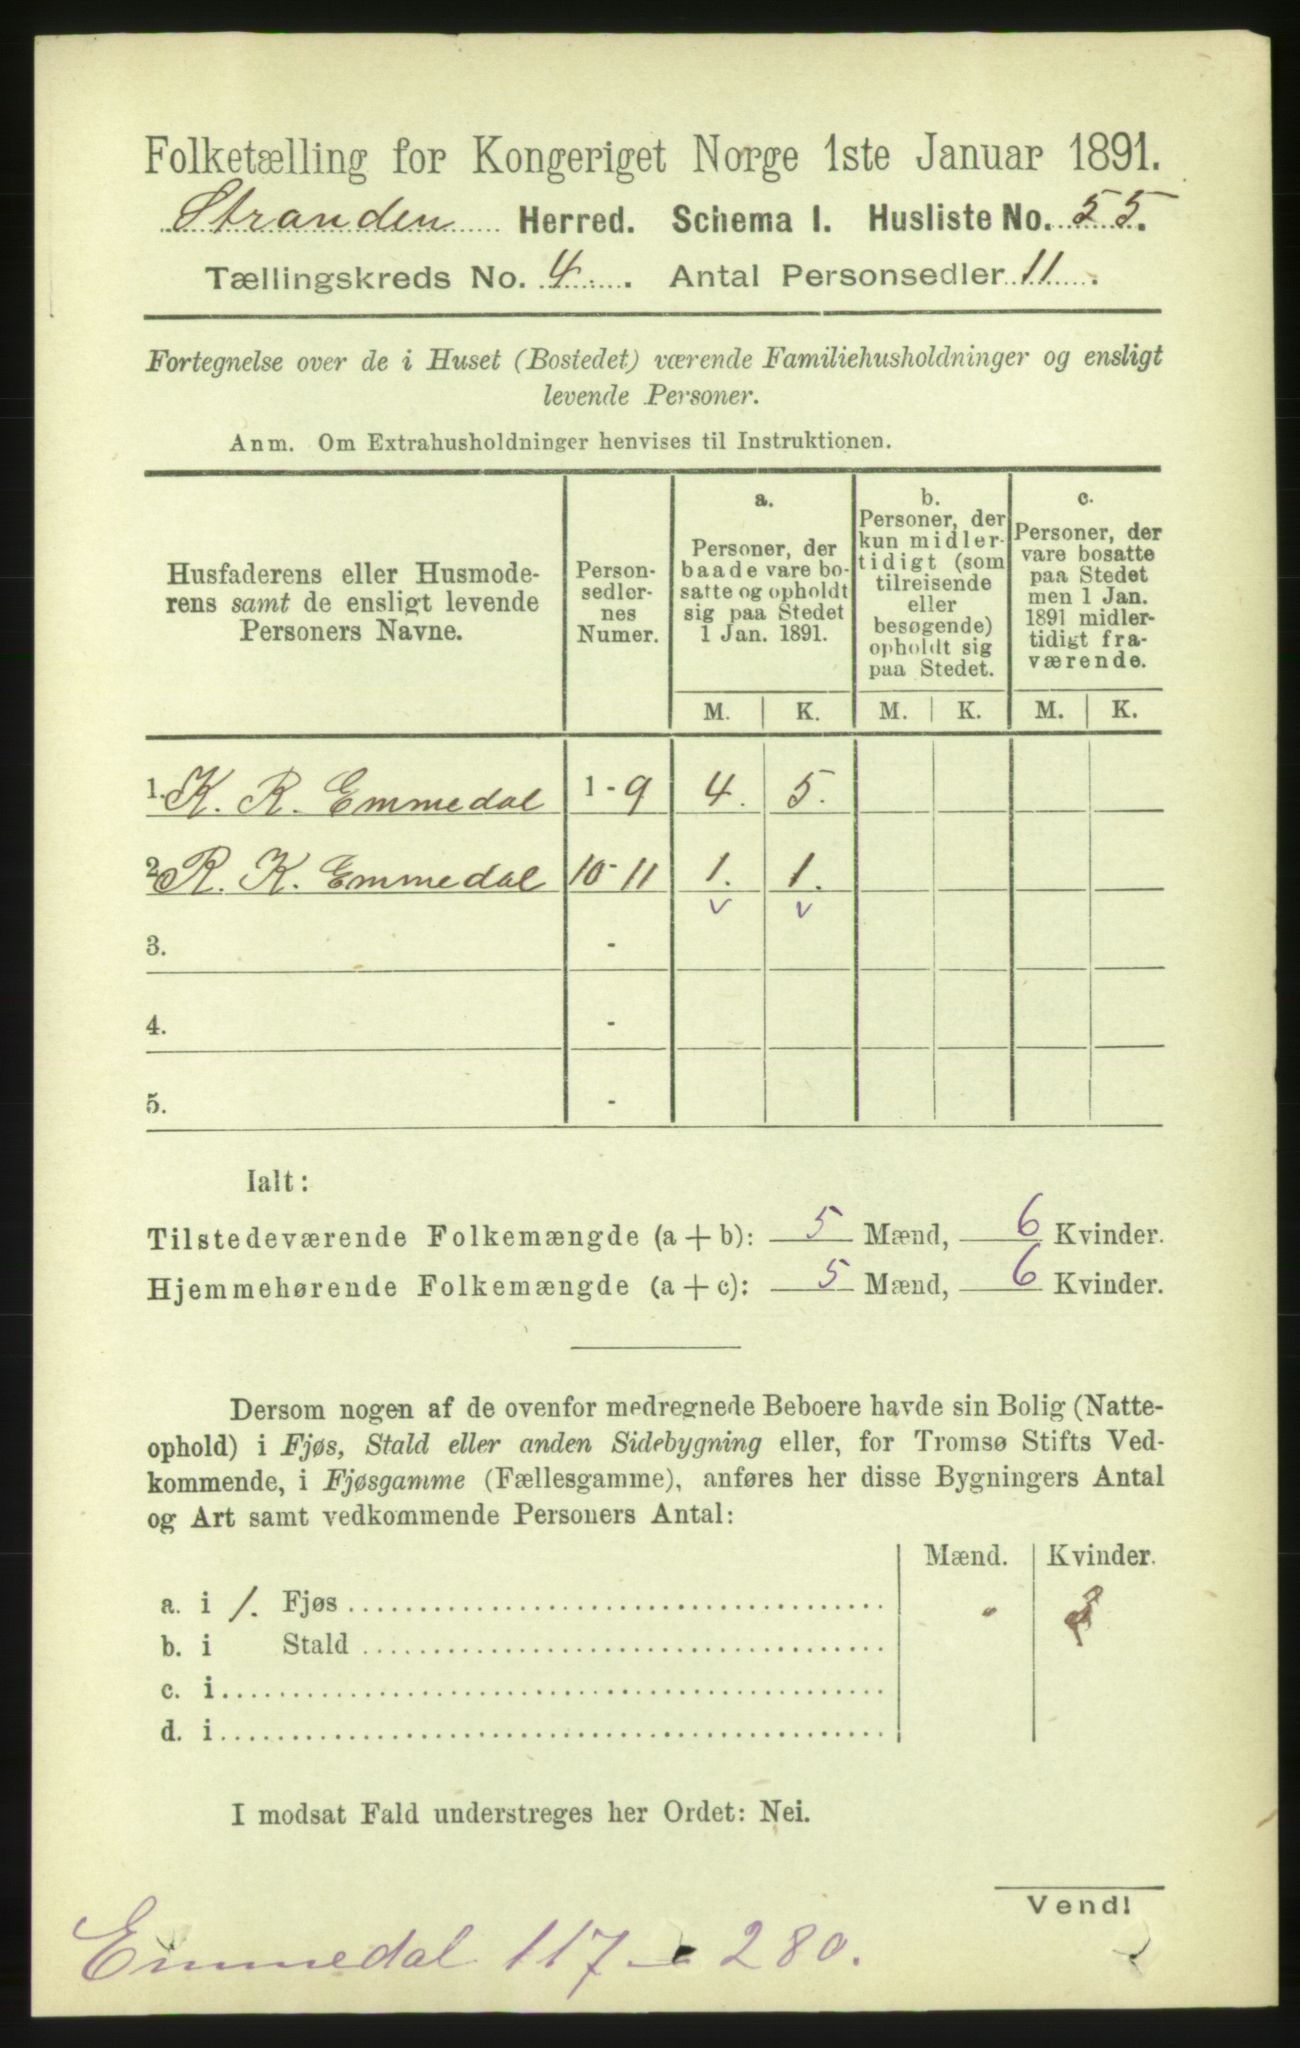 Folketælling for Kongeriget Norge 1ste Januar 1891.
Stranden Herred. Schema I. Husliste No. 55.
Tællingskreds No. 4. Antal Personsedler 11.
Fortegnelse over de i Huset (Bostedet) værende Familiehusholdninger og ensligt
levende Personer.
Anm. Om Extrahusholdninger henvises til Instruktionen.
Husfaderens eller Husmode-
rens samt de ensligt levende
Personers Navne.
Person-
sedler-
nes
Numer.
a.
Personer, der
baade vare bo-
satte og opholdt
sig paa Stedet
1 Jan. 1891.
b.
Personer, der
kun midler-
tidigt (som
tilreisende
eller
besøgende)
opholdt sig
paa Stedet.
c.
Personer, der
vare bosatte
paa Stedet
men 1 Jan.
1891 midler-
tidigt fra-
værende.
M. K. M. K. M. K.
1. K. R. Emmedal 1-9 4. 5.
2 R. K. Emmedal 10-11 1. 1.
v v
3. -
4. -
5. -
Ialt:
Tilstedeværende Folkemængde (a + b): 5 Mænd, 6 Kvinder.
Hjemmehørende Folkemængde (a + c): 5 Mænd, 6 Kvinder.
Dersom nogen af de ovenfor medregnede Beboere havde sin Bolig (Natte-
ophold) i Fjøs, Stald eller anden Sidebygning eller, for Tromsø Stifts Ved-
kommende, i Fjøsgamme (Fællesgamme), anføres her disse Bygningers Antal
og Art samt vedkommende Personers Antal:
Mænd. Kvinder.
a. i 1. Fjøs "
b. i Stald
c. i
d. i
I modsat Fald understreges her Ordet: Nei.
Vend!
Emmedal 117 - 280.